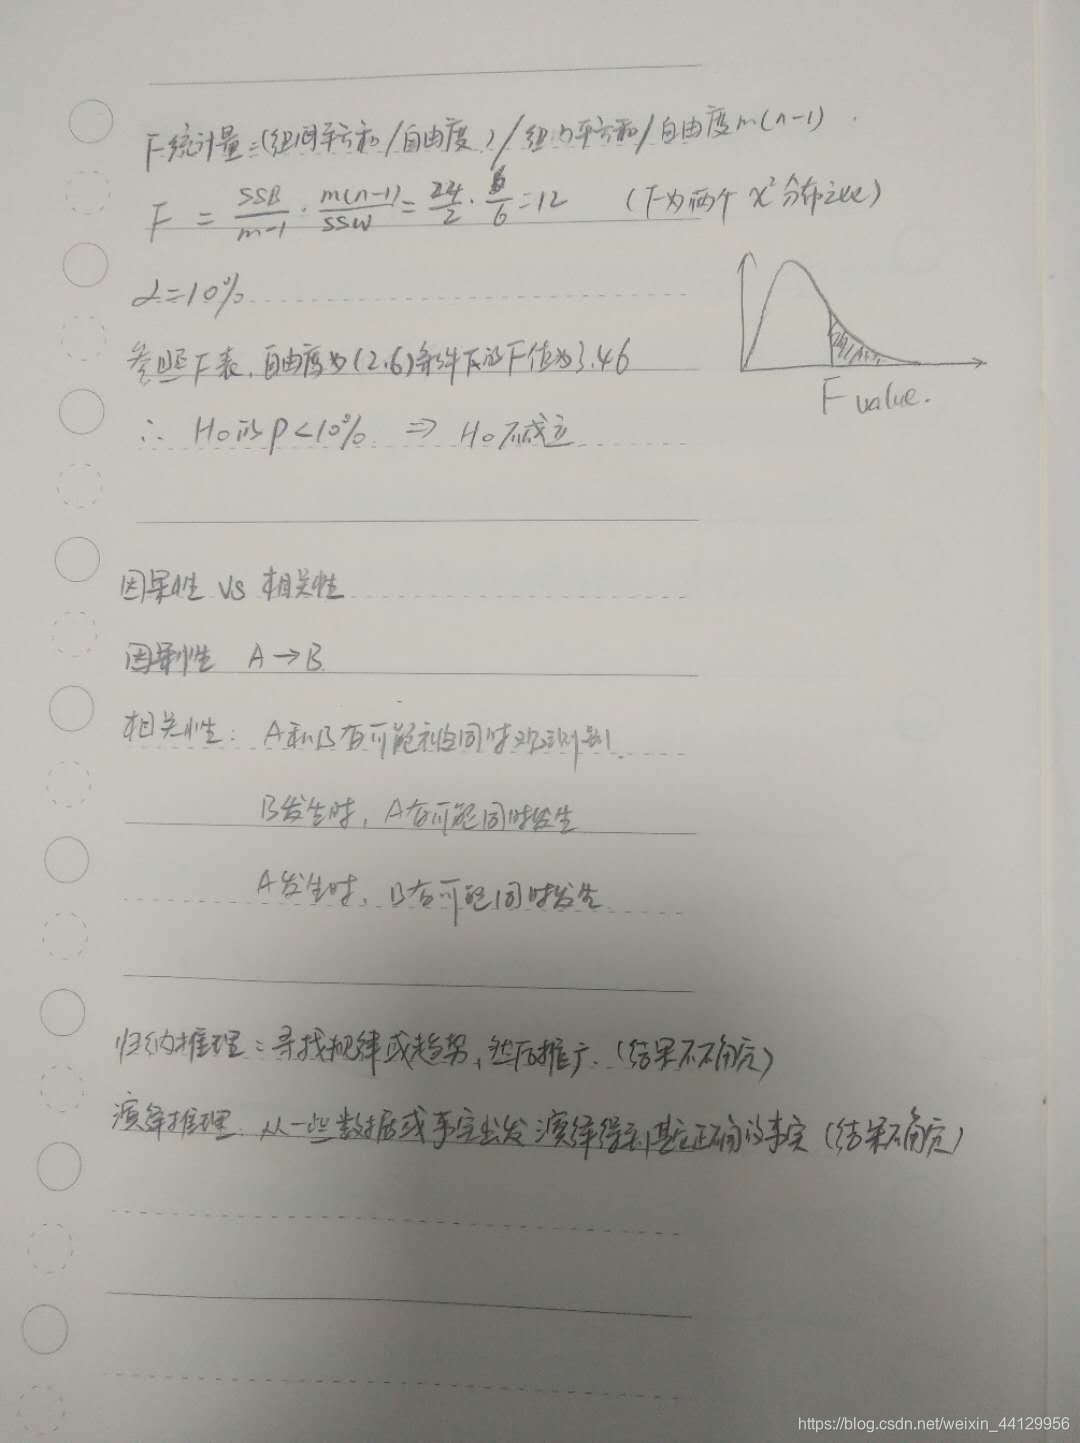 F统计量=(组间平方和/自由度)/组内平方和/自由度m(n-1)
F = SSB/m-1 · m(n-1)/SSW = 24/2 · 6/6 = 12 (F为两个 χ² 分布之比)
α=10%
参照F表,自由度为(2,6)条件下的F值为3.46
∴ H₀的P<10% ⇒ H₀不成立
F value.
因果性 VS 相关性
因果性 A→B
相关性: A和B有可能同时观测到.
B发生时, A有可能同时发生
A发生时, B有可能同时发生
归纳推理:寻找规律或趋势,然后推广.(结果不确定)
演绎推理.从一些数据或事实出发演绎得到其它正确的事实(结果确定)
https://blog.csdn.net/weixin_44129956